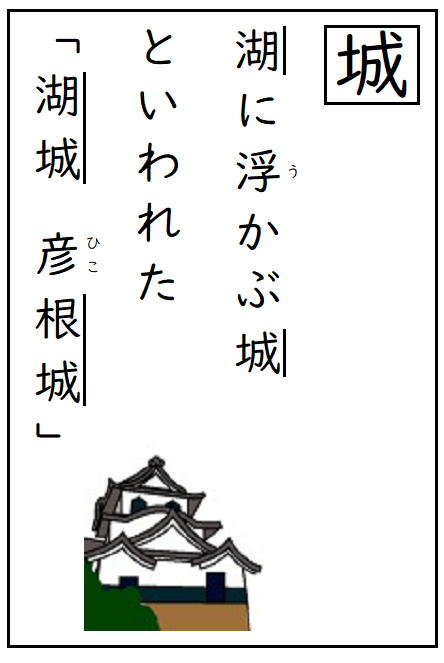 城
湖に浮かぶ城
う
といわれた
「湖城 彦根城」
ひこ